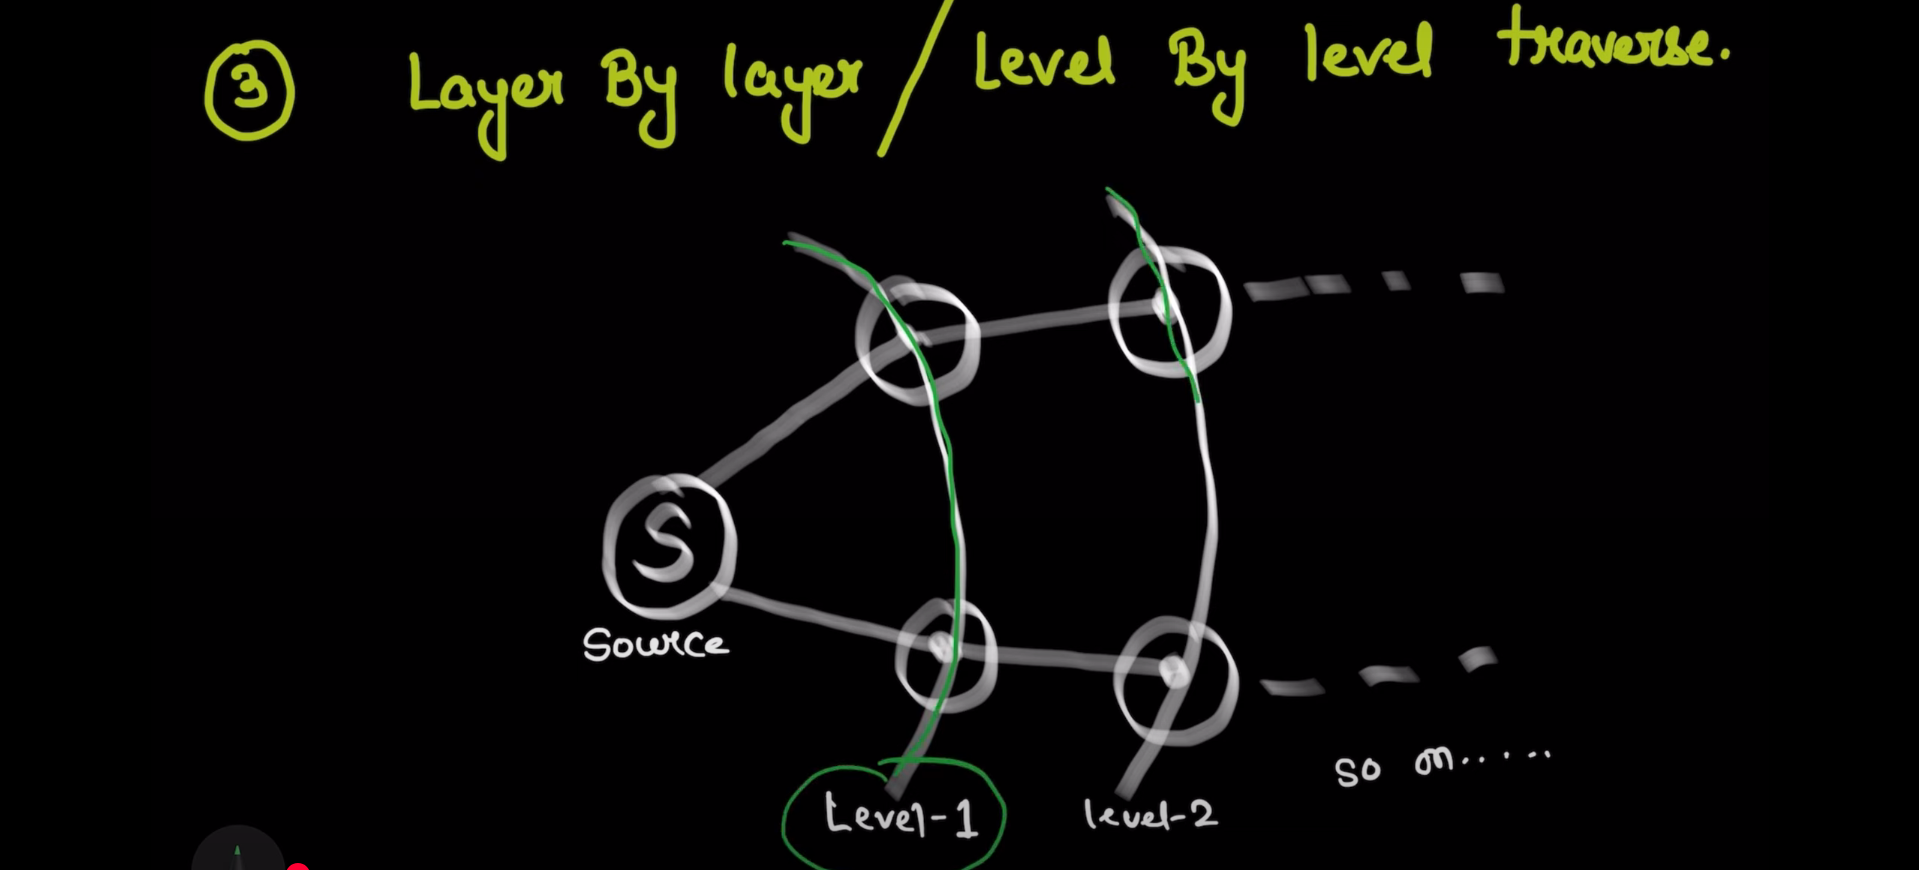 3 Layer By layer / Level By level traverse.
S
Source
so on.....
Level-1 level-2